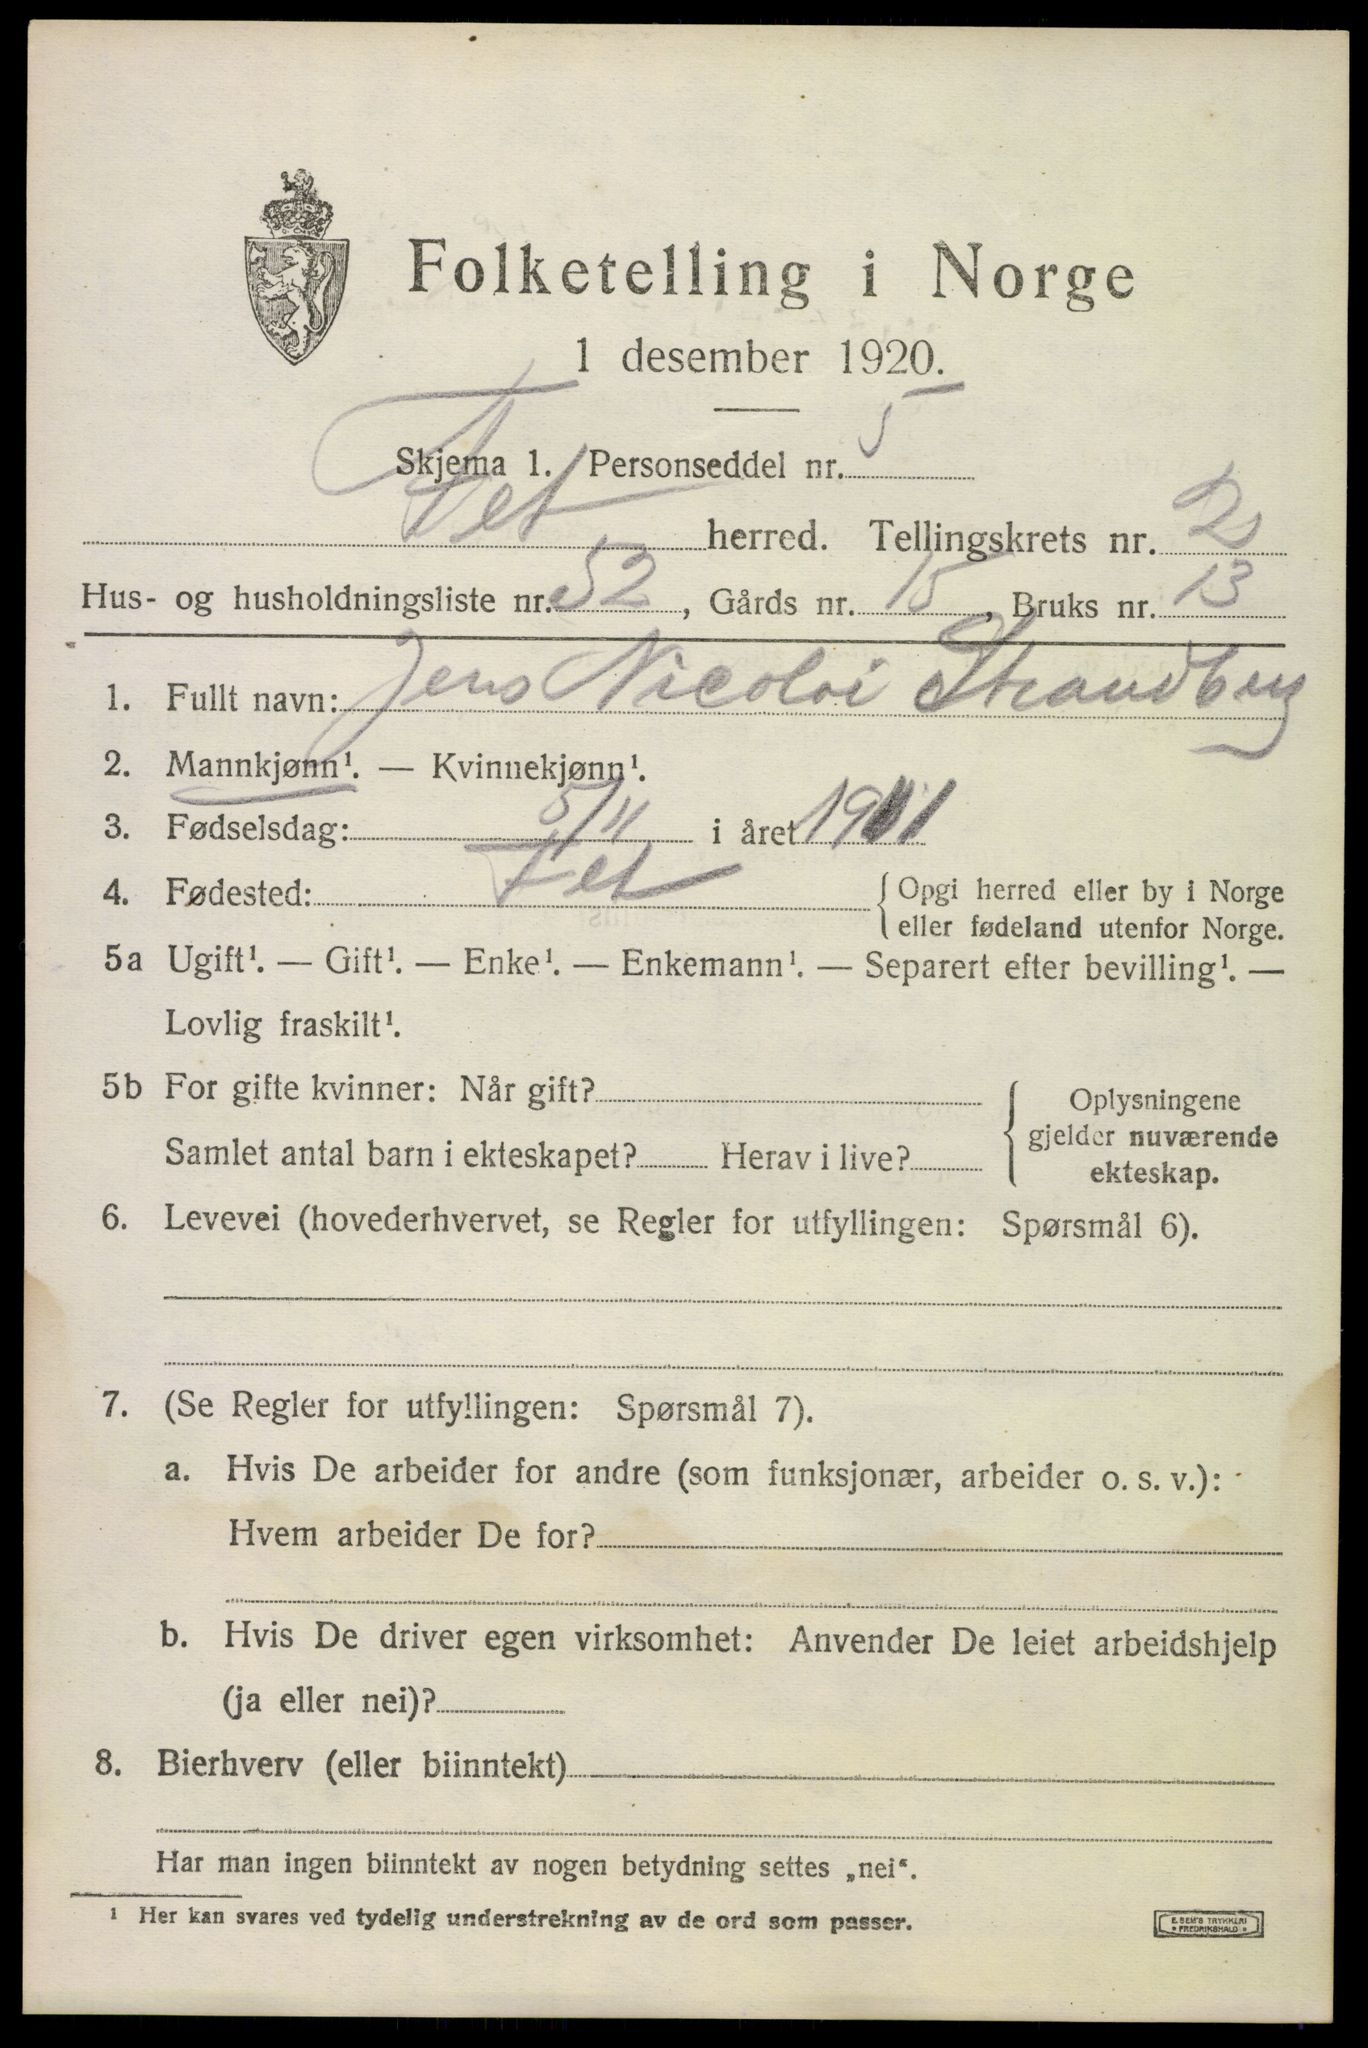 Folketelling i Norge
1 desember 1920.
Skjema 1. Personseddel nr. 5
Fet herred. Tellingskrets nr. 2
Hus- og husholdningsliste nr. 52, Gårds nr. 15, Bruks nr. 13
1. Fullt navn: Jens Nicolai Strandberg
2. Mannkjønn¹. — Kvinnekjønn¹.
3. Fødselsdag: 5/11 i året 1911
4. Fødested: Fet {Opgi herred eller by i Norge
eller fødeland utenfor Norge.
5a Ugift¹. — Gift¹. — Enke¹. — Enkemann¹. — Separert efter bevilling¹. —
Lovlig fraskilt¹.
5b For gifte kvinner: Når gift?
Samlet antal barn i ekteskapet? Herav i live?
{Oplysningene
gjelder nuværende
ekteskap.
6. Levevei (hovederhvervet, se Regler for utfyllingen: Spørsmål 6).
7. (Se Regler for utfyllingen: Spørsmål 7).
a. Hvis De arbeider for andre (som funksjonær, arbeider o. s. v.):
Hvem arbeider De for?
b. Hvis De driver egen virksomhet: Anvender De leiet arbeidshjelp
(ja eller nei)?
8. Bierhverv (eller biinntekt)
Har man ingen biinntekt av nogen betydning settes „nei“.
¹ Her kan svares ved tydelig understrekning av de ord som passer.
E. SEM'S TRYKKERI
FREDRIKSHALD